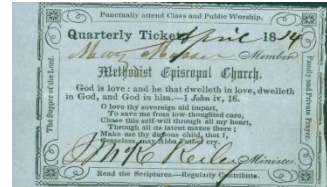 Punctually attend Class and Public Worship.
Quarterly Ticket April 18
Mary Member
Methodist Episcopal Church.
God is love: and he that dwelleth in love, dwelleth
in God, and God in him.—1 John iv, 16.
O love thy sovereign aid impart,
To save me from low-thoughted care,
Chase this self-will through all my heart,
Through all its latent mazes there;
Make me thy duteous child, that I,
Ceaseless, may Abba Father cry.
Minister
Read the Scriptures.—Regularly Contribute.
The Supper of the Lord.
Family and Private Prayer.